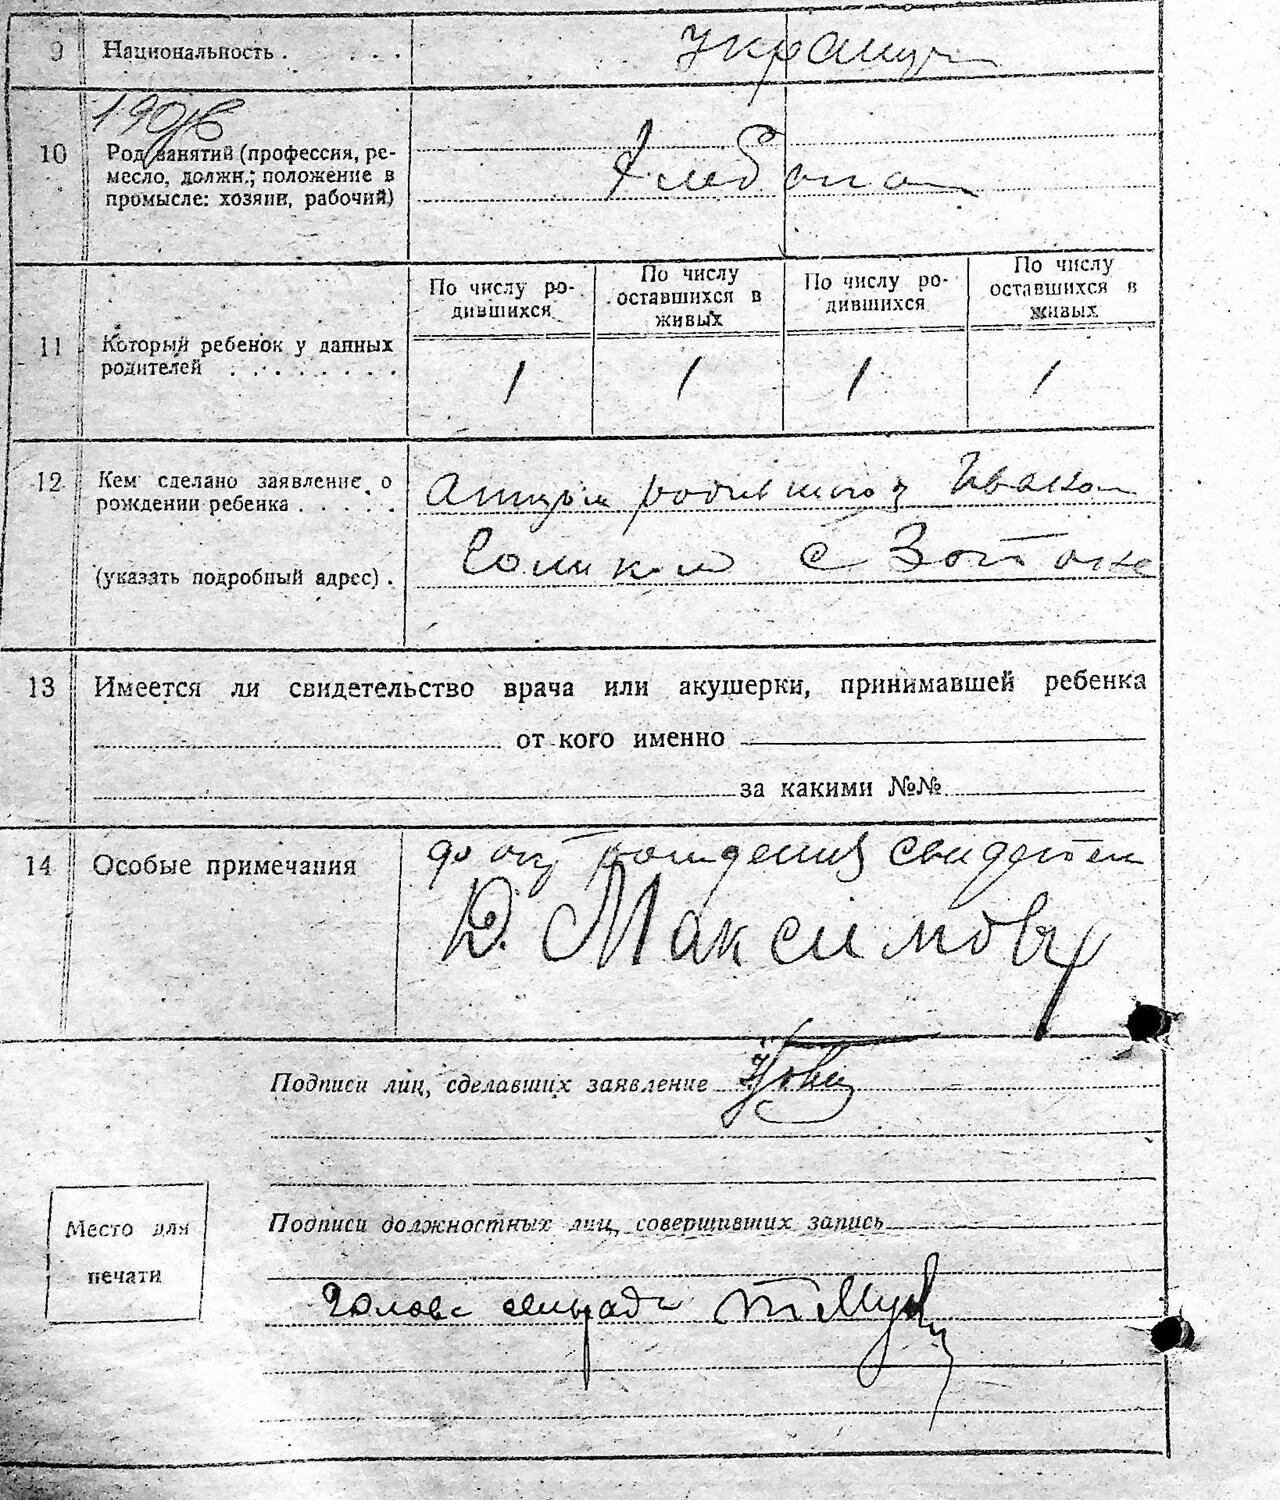 9 Национальность . . . .
190
10 Род занятий (профессия, ре-
месло, должн.; положение в
промысле: хозяин, рабочий)
По числу ро-
дившихся
По числу
оставшихся в
живых
По числу ро-
дившихся
По числу
оставшихся в
живых
11 Который ребенок у данных
родителей . . . . . . . .
1 1 1 1
12 Кем сделано заявление о
рождении ребенка . . . . .
(указать подробный адрес) .
Ивано
с
13 Имеется ли свидетельство врача или акушерки, принимавшей ребенка
от кого именно
за какими №№
14 Особые примечания
рождения
Д. Максимову
Подписи лиц, сделавших заявление
Подписи должностных лиц, совершивших запись
Место для
печати
Голова сельради